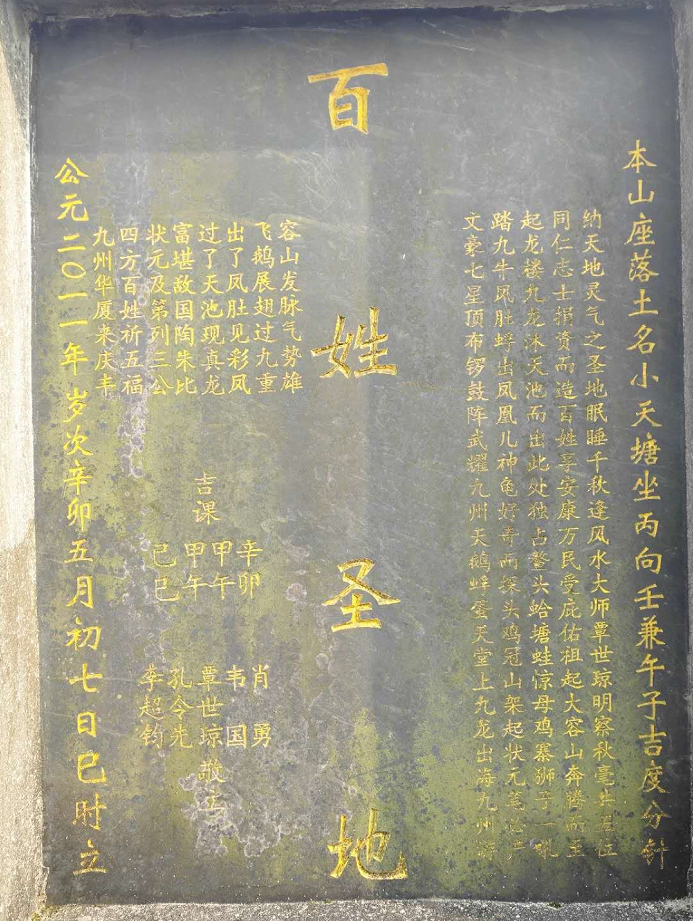 本山座落土名小天塘坐丙向壬兼午子吉度分针
纳天地灵气之圣地眠睡千秋逢风水大师覃世琼明察秋毫出
同仁志士捐资而造百姓享安康万民受庇佑祖起大容山奔腾而至
起龙楼九龙沐天池而出此处独占鳌头蛤塘蛙惊母鸡寨狮子一吼
踏九牛凤肚蜉出凤凰儿神龟好奇而探头鸡冠山架起状元笔
文豪七星顶布锣鼓阵武耀九州天鹅蜉蛋天堂上九龙出海九州
百姓圣地
容山发脉气势雄
飞鹅展翅过九重
出了凤肚见彩凤
过了天池现真龙
富堪敌国陶朱比
状元及第列三公
四方百姓祈五福
九州华厦来庆丰
吉课
辛卯
甲午
甲午
己巳
肖勇
韦国
覃世琼敬立
孔令先
李超钧
公元二〇一一年岁次辛卯五月初七日巳时立